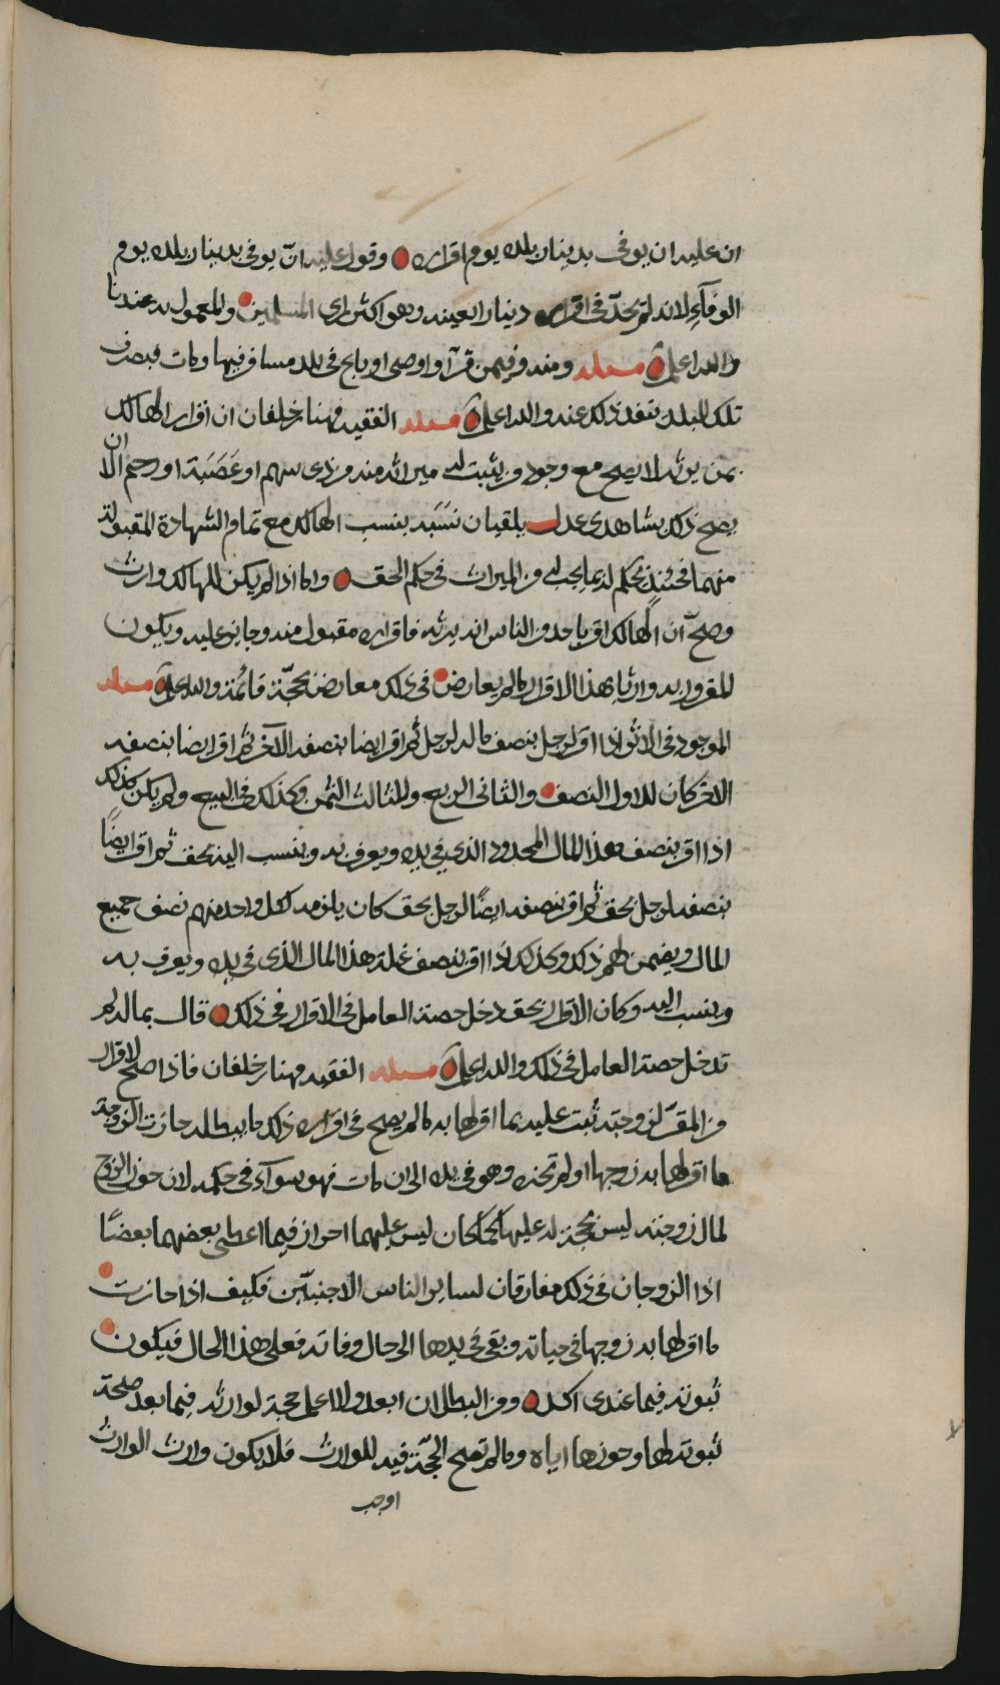 ان عليه ان يوفى بدينار بلده يوم اقراره وقول عليه ان يوفى بدينار بلده يوم
الوفآء لانه لم يحدّ فى اقراره دينارا بعينه وهو اكثر راى المسلمين والمعمول به عندنا
والله اعلم مسئله ومنه وفيمن قرّ او اوصى او بايع فى بلد مسافر فيها ومات فبصرف
تلك البلد تنفذ ذلك عنه والله اعلم مسئله الفقيه مهنا بن خلفان ان اقرار الهالك
بمن يرثه لا يصح مع وجود من يثبت له ميراثه منه من ذى سهم او عَصَبَة او رحم الا ان
يصح ذلك بشاهدى عدل يلقيان نسَبَه بنسب الهالك مع تمام الشهادة المقبولة
منهما فحينئذ يحكم له بما يجب له من الميراث فى حكم الحق واما اذا لم يكن للهالك وارث
وصحّ أن الهالك اقر باحد من الناس انه يرثه فاقراره مقبول منه وجايز عليه ويكون
المقرور به وارثا بهذا الاقرار ما لم يعارض فى ذلك معارض بحجّة قائمة والله اعلم مسئله
الموجود فى الاثر اذا اقر لرجل بنصف ماله لرجل ثم اقر ايضا بنصفه لآخر ثم اقر ايضا بنصفه
لاخر كان للاول النصف والثانى الربع وللثالث الثمن وكذلك فى البيع ولم يكن كذلك
اذا اقر بنصف هذا المال المحدود الذى فى يده ويعرف به وينسب اليه بحق ثم اقر ايضًا
بنصفه لرجل بحق ثم اقر بنصفه ايضًا لرجل بحق كان يلزمه لكل واحد منهم نصف جميع
المال ويضمن لهم ذلك وكذلك اذا اقر بنصف غلة هذا المال الذى فى يده ويعرف به
وينسب اليه وكان الاقرار بحق دخل حصة العامل فى الاقرار فى ذلك قال بماله لم
تدخل حصة العامل فى ذلك والله اعلم مسئله الفقيه مهنا بن خلفان فاذا صح الاقرار
من المقرّ لزوجته ثبت عليه بما اقر لها به ما لم يصح فى اقراره ذلك ما يبطله حازت الزوجة
ما اقر لها به زوجها او لم تحزه وهو فى يده الى ان مات فهو سوآء فى حكمه لان حوز الزوج
لمال زوجته ليس بحجة له عليها كما كان ليس عليهما احراز فيما اعطى بعضهما بعضًا
اذا الزوجان فى ذلك مفارقان لساير الناس الاجنبيّين فكيف اذا حازت
ما اقر لها به زوجها فى حياته وبقى فى يدها الى حال وفاته فعلى هذا الحال فيكون
ثبوته فيما عندى اكد ومن البطلان ابعد ولا اعلم حجة لوارثه فيما بعد صحة
ثبوته لها وحوزها اياه وما لم تصح الحجّة فيه للوارث فلا يكون وارث الوارث
اوجب